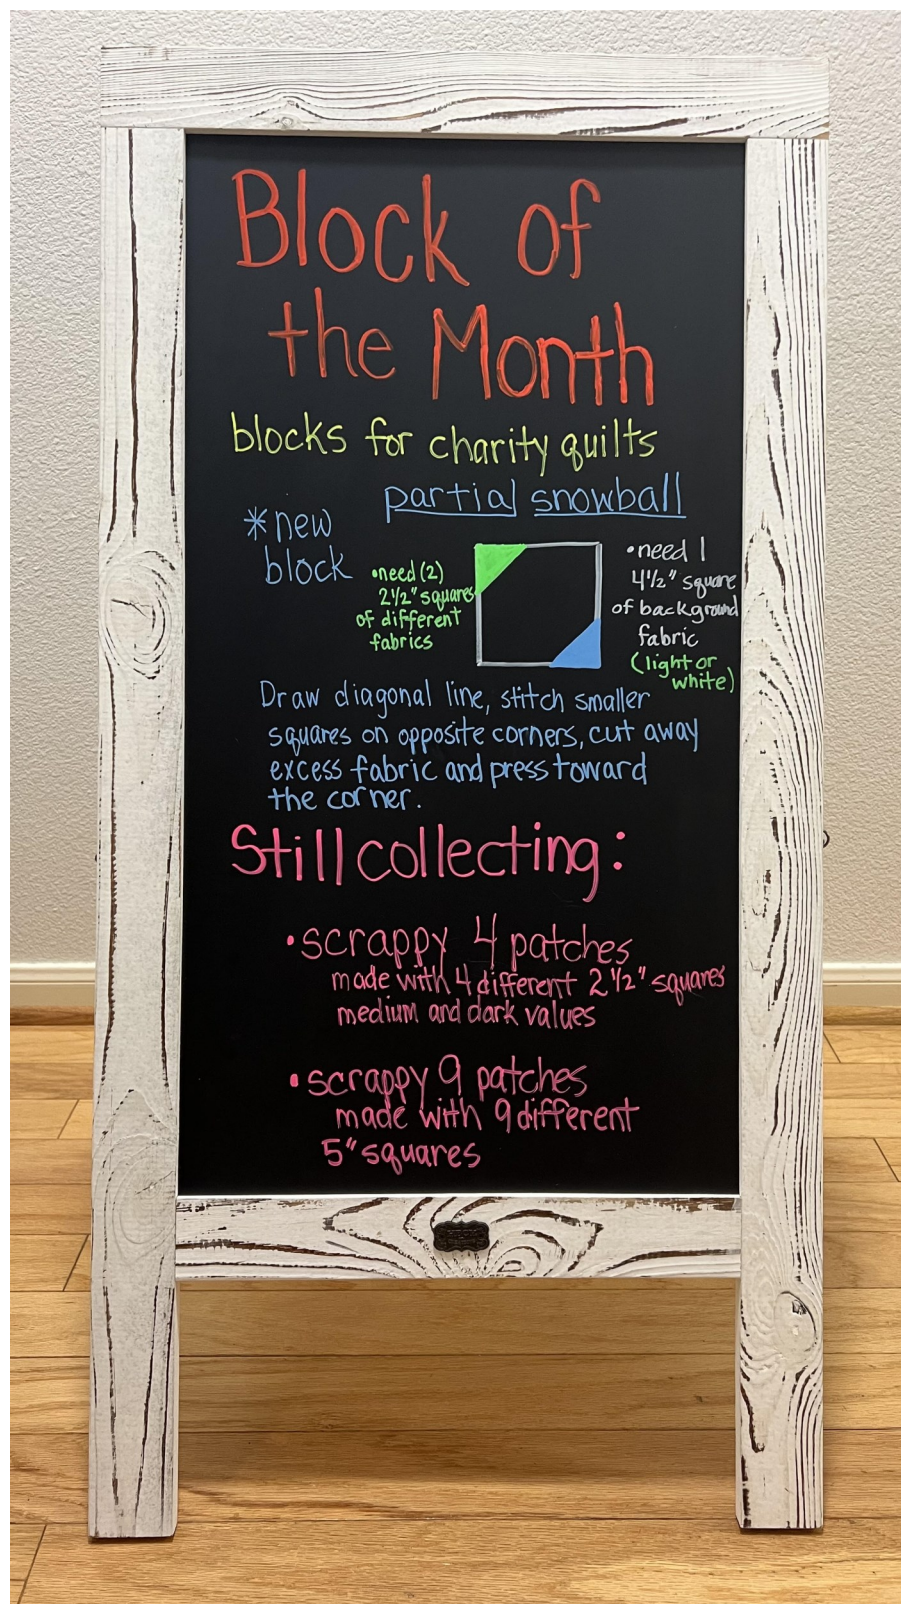 Block of
the Month
blocks for charity quilts
partial snowball
*new
block
•need (2)
2½" squares
of different
fabrics
•need 1
4½" square
of background
fabric
(light or
white)
Draw diagonal line, stitch smaller
squares on opposite corners, cut away
excess fabric and press toward
the corner.
Still collecting:
•scrappy 4 patches
made with 4 different 2½" squares
medium and dark values
•scrappy 9 patches
made with 9 different
5" squares